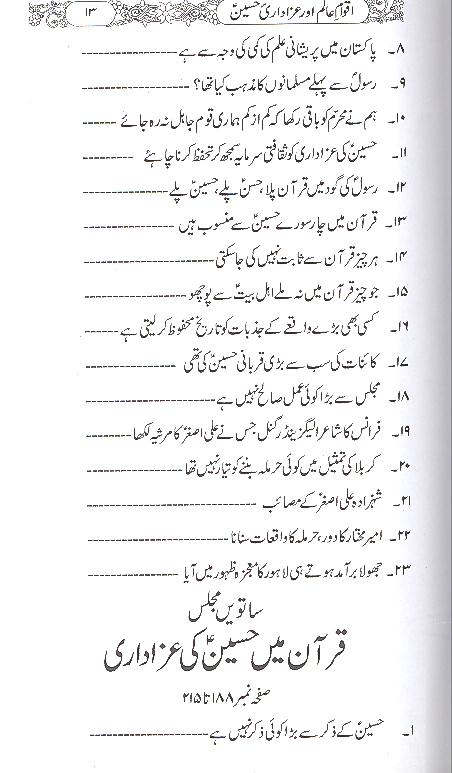 اقوامِ عالم اور عزاداریِ حسینؑ ۱۳
۸۔ پاکستان میں پریشانی علم کی کمی کی وجہ سے ہے
۹۔ رسولؐ سے پہلے مسلمانوں کا مذہب کیا تھا؟
۱۰۔ ہم نے محرّم کو باقی رکھا کہ کم از کم ہماری قوم جاہل نہ رہ جائے
۱۱۔ حسینؑ کی عزاداری کو ثقافتی سرمایہ سمجھ کر تحفظ کرنا چاہئے
۱۲۔ رسولؐ کی گود میں قرآن پلا، حسنؑ پلے، حسینؑ پلے
۱۳۔ قرآن میں چار سورے حسینؑ سے منسوب ہیں
۱۴۔ ہر چیز قرآن سے ثابت نہیں کی جاسکتی
۱۵۔ جو چیز قرآن میں نہ ملے اہل بیتؑ سے پوچھو
۱۶۔ کسی بھی بڑے واقعے کے جذبات کو تاریخ محفوظ کر لیتی ہے
۱۷۔ کائنات کی سب سے بڑی قربانی حسینؑ کی تھی
۱۸۔ مجلس سے بڑا کوئی عمل صالح نہیں ہے
۱۹۔ فرانس کا شاعر الیگزینڈر گنل جس نے علی اصغرؑ کا مرثیہ لکھا
۲۰۔ کربلا کی تمثیل میں کوئی حرملہ بننے کو تیار نہیں تھا
۲۱۔ شہزادہ علی اصغرؑ کے مصائب
۲۲۔ امیر مختار کا دور، حرملہ کا واقعات سنانا
۲۳۔ جھولا برآمد ہوتے ہی لاہور کا معجزہ ظہور میں آیا
ساتویں مجلس
قرآن میں حسینؑ کی عزاداری
صفحہ نمبر ۱۸۸ تا ۲۱۵
۱۔ حسینؑ کے ذکر سے بڑا کوئی ذکر نہیں ہے